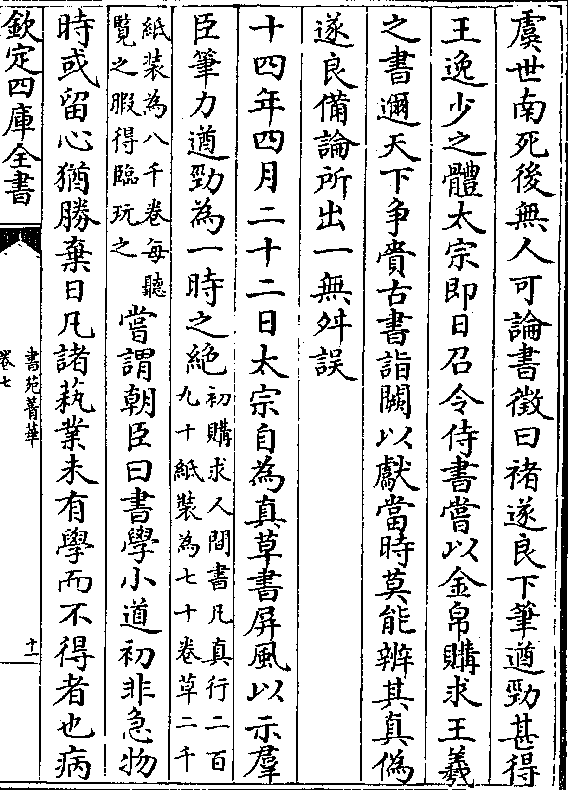 虞世南死後無人可論書徴曰褚遂良下筆遒勁甚得
王逸少之體太宗即日召令侍書嘗以金帛購求王羲
之書邇天下争賫古書詣闕以獻當時莫能辨其真僞
遂良備論所出一無舛誤
十四年四月二十二日太宗自為真草書屏風以示羣
臣筆力遒勁為一時之絶初購求人間書凡真行二百
九十紙装為七十卷草二千
紙装為八千卷每聽
覽之暇得臨玩之
嘗謂朝臣曰書學小道初非急物
時或留心猶勝棄日凡諸藝業未有學而不得者也病
欽定四庫全書
書苑菁華
卷七
十一